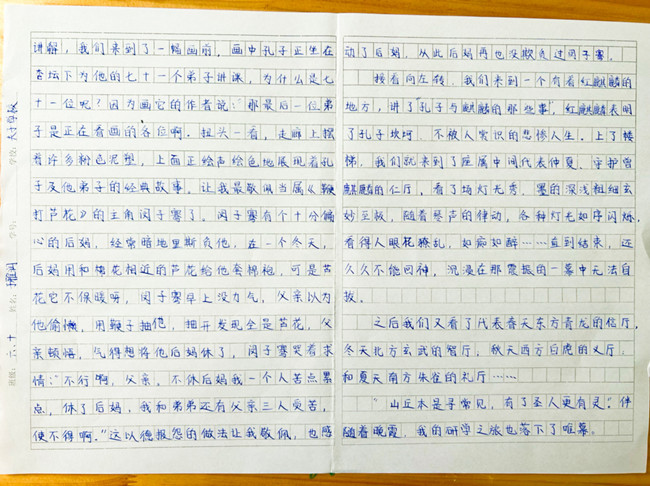 讲解，我们来到了一幅画前，画中孔子正坐在
杏坛下为他的七十一个弟子讲课，为什么是七
十一位呢？因为画它的作者说：“那最后一位弟
子是正在看画的各位啊。抬头一看，走廊上摆
着许多粉色泥塑，上面正绘声绘色地展现着孔
子及他弟子的经典故事。让我最敬佩当属《鞭
打芦花》的主角闵子骞了。闵子骞有个十分偏
心的后妈，经常暗地里欺负他，在一个冬天，
后妈用和棉花相近的芦花给他套棉袍，可是芦
花它不保暖呀，闵子骞早上没力气，父亲以为
他偷懒，用鞭子抽他，抽开发现全是芦花，父
亲顿悟，气得想将他后妈休了，闵子骞哭着求
情：“不行啊，父亲，不休后妈我一个人苦点累
点，休了后妈，我和弟弟还有父亲三人受苦，
使不得啊。”这以德报怨的做法让我敬佩，也感
动了后妈，从此后妈再也没欺负过闵子骞。
接着向左转，我们来到一个有着红麒麟的
地方，讲了“孔子与麒麟的那些事”，红麒麟表明
了孔子坎坷、不被人赏识的悲惨人生。上了楼
梯，我们就来到了座属中间代表仲夏、守护兽
麒麟的仁厅，看了场灯光秀，墨的深浅粗细玄
妙至极，随着琴声的律动，各种灯光如序闪烁，
看得人眼花獠乱，如痴如醉……直到结束，还
久久不能回神，沉浸在那震撼的一幕中无法自
拔。
之后我们又看了代表春天东方青龙的信厅，
冬天北方玄武的智厅，秋天西方白虎的义厅，
和夏天南方朱雀的礼厅……
“山丘本是寻常见，有了圣人更有灵”。伴
随着晚霞，我的研学之旅也落下了帷幕。
学校：
学号：
姓名：
班级：六.十